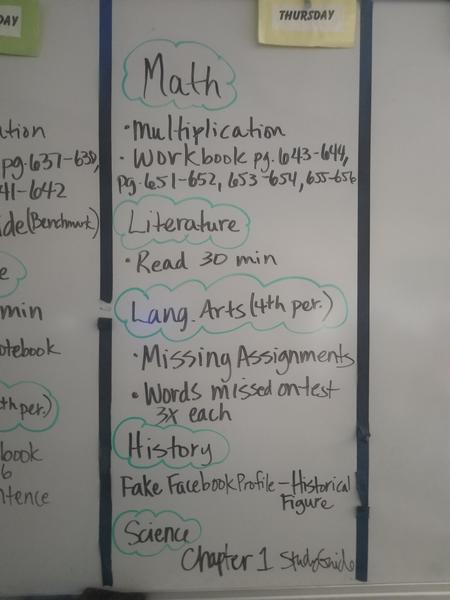 DAY
THURSDAY
ation
pg. 637-638,
41-642
ide (Benchmark)
e
min
otebook
th per.)
book
6
ntence
Math
• Multiplication
• Workbook pg. 643-644,
pg. 651-652, 653-654, 655-656
Literature
• Read 30 min
Lang. Arts (4th per.)
• Missing Assignments
• Words missed on test
3x each
History
Fake Facebook Profile - Historical
Figure
Science
Chapter 1 Study Guide